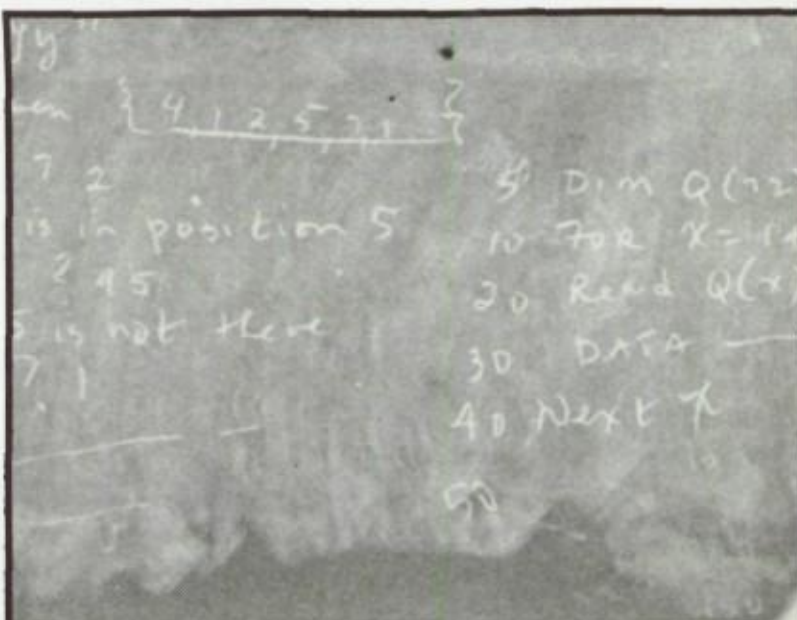 { 4 1 2 5 7 1 }
? 2
is in position 5
? 45
is not there
? 1
5 Dim Q(
10 FOR X=1
20 Read Q(x)
30 DATA
40 Next X
50